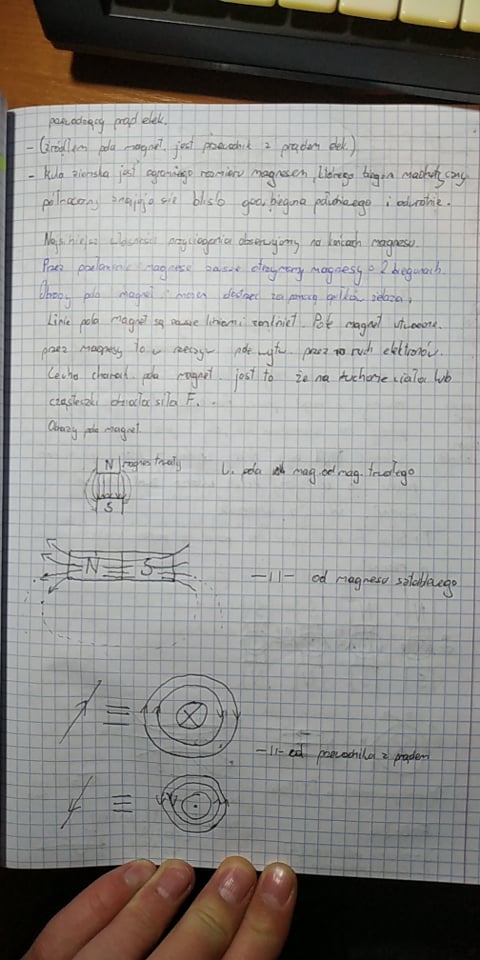 prąd elek.
- (źródłem pola magnet. jest przewodnik z prądem elek.)
- Kula ziemska jest ogromnego rozmiaru magnesem, którego biegun
północny znajduje się blisko geo. bieguna i odwrotnie.
Najsilniejsze własności przyciągania obserwujemy na końcach magnesu.
Przez magnesu zawsze otrzymamy magnesy o 2 biegunach.
Obrazy pola magnet. można za pomocą żelaza,
Linie pola magnet są zawsze liniami Pole magnet utworzone
przez magnesy to w rzeczyw. przez ruch elektronów.
Cechą charakt. pola magnet. jest to że na ruchome ciała lub
cząsteczki działa siła F.
Obrazy pola magnet.
N magnes trwały
S
L. pola mag. od mag. trwałego
N S
-11- od magnesu sztabkowego
-11- od przewodnika z prądem